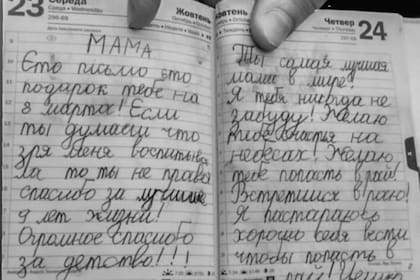 23 Середа
Среда • Wednesday
296-69
Жовтень
МАМА
Ето письмо ето
подарок тебе на
8 марта! Если
ты думаеш что
зря меня воспитыва
ла то ты не права
спасибо за лучшие
9 лет жизни!
Огромное спасибо
за детство!!!
Жовтень
Четвер 24
Четверг • Thursday
Ты самая лучшая
мама в мире!
Я тебя никогда не
забуду! Желаю
тебе счастья на
небесах! Желаю
тебе попасть в рай!
Встретимся в раю!
Я постараюсь
хорошо себя вести
чтобы попасть в